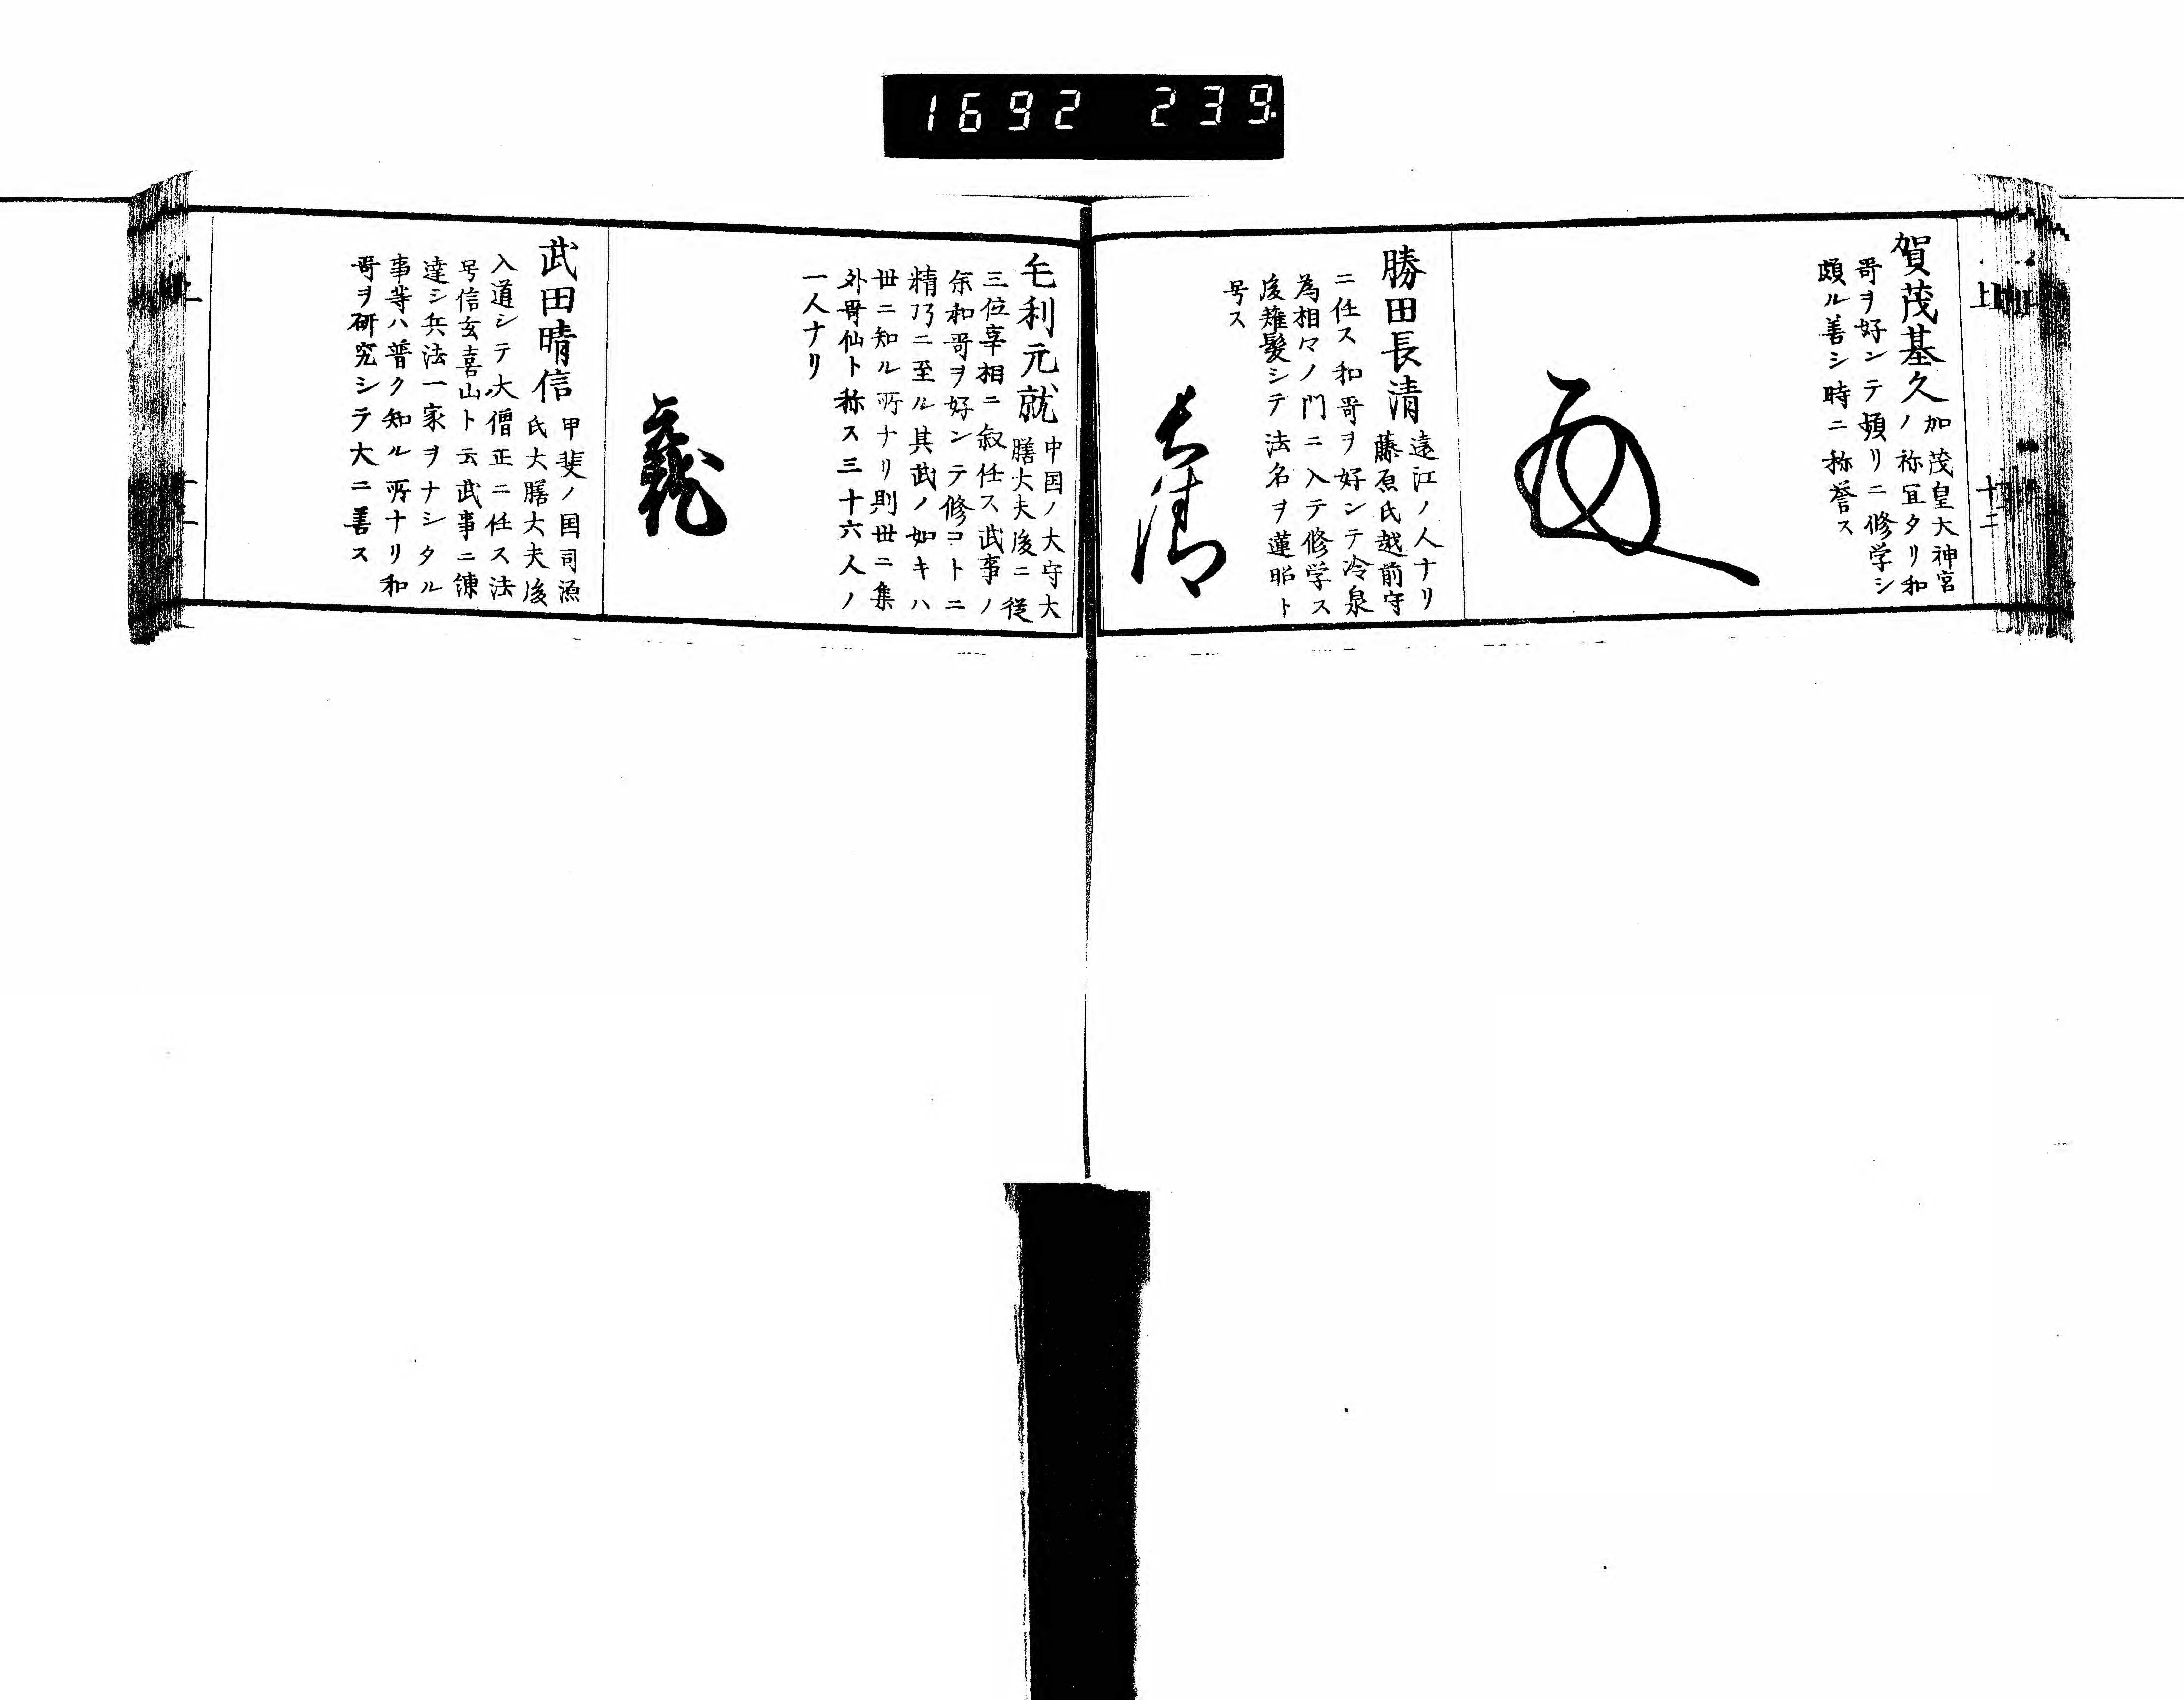 1692 239.
賀茂基久 加茂皇大神宮
ノ祢冝タリ和
哥ヲ好ンテ頻リニ修学シ
頗ル善シ時ニ称誉ス
勝田長清 遠江ノ人ナリ
藤原氏越前守
ニ任ス和哥ヲ好ンテ冷泉
為相々ノ門ニ入テ修学ス
後薙髪シテ法名ヲ蓮昭ト
号ス
長清
毛利元就 中国ノ大守大
膳大夫後ニ従
三位宰相ニ叙任ス武事ノ
余和哥ヲ好ンテ修コトニ
精乃ニ至ル其武ノ如キハ
世ニ知ル所ナリ則世ニ集
外哥仙ト称ス三十六人ノ
一人ナリ
武田晴信 甲斐ノ国司源
氏大膳大夫後
入道シテ大僧正ニ任ス法
号信玄喜山ト云武事ニ練
達シ兵法一家ヲナシタル
事等ハ普ク知ル所ナリ和
哥ヲ研究シテ大ニ善ス